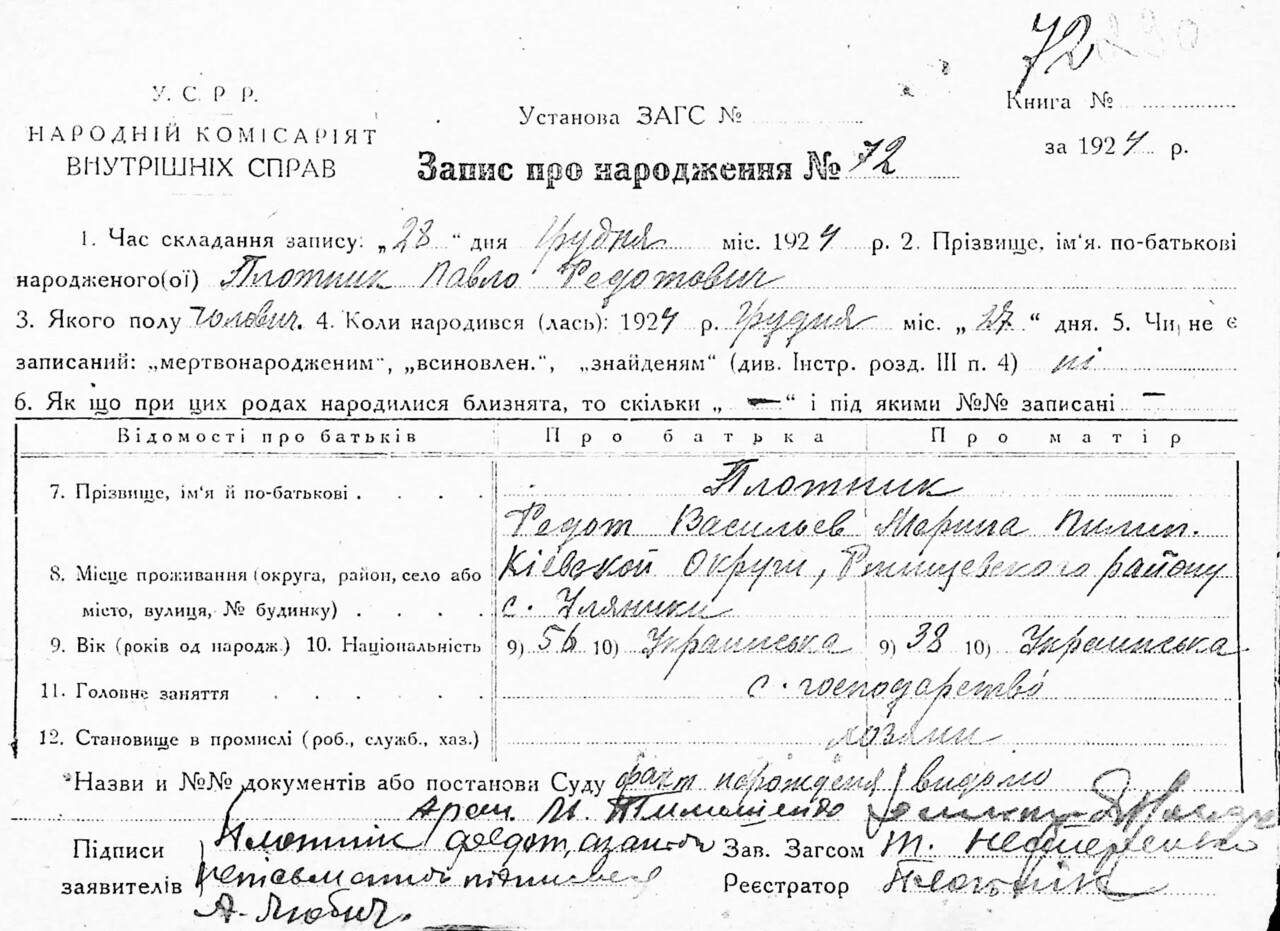 72
У. С. Р. Р.
НАРОДНІЙ КОМІСАРІЯТ
ВНУТРІШНІХ СПРАВ
Установа ЗАГС №
Книга №
за 1924 р.
Запис про народження № 72
1. Час складання запису: „28 “ дня Грудня міс. 1924 р. 2. Прізвище, ім'я. по-батькові
народженого(ої) Плотник Павло Федотович
3. Якого полу чолович. 4. Коли народився (лась): 1924 р. Грудня міс. „ 27 “ дня. 5. Чи, не є
записаний: „мертвонародженим“, „всиновлен.“, „знайденям“ (див. Інстр. розд. III п. 4) ні
6. Як що при цих родах народилися близнята, то скільки „ — “ і під якими №№ записані —
Відомості про батьків Про батька Про матір
7. Прізвище, ім'я й по-батькові . . . . Плотник
Федот Васильев Марина Пилип.
8. Місце проживання (округа, район, село або Кіевской Округи, Ржищевского району
місто, вулиця, № будинку) . . . . с. Уляники
9. Вік (років од народж.) 10. Національність 9) 56 10) Украинська 9) 38 10) Украинська
11. Головне заняття . . . . . с. господарство
12. Становище в промислі (роб., служб., хаз.) хозяин
*Назви и №№ документів або постанови Суду факт порожденя видомо
Тимошенко
Підписи Плотнік федот, Зав. Загсом Т. Нестеренко
заявителів Реєстратор Плотнік
А. Любич.